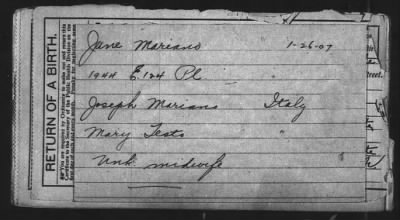 RETURN OF A BIRTH.
Jane Mariano 1-26-07
1944 E. 124 Pl. "
Joseph Mariano Italy
Mary Testo "
Unk. midwife